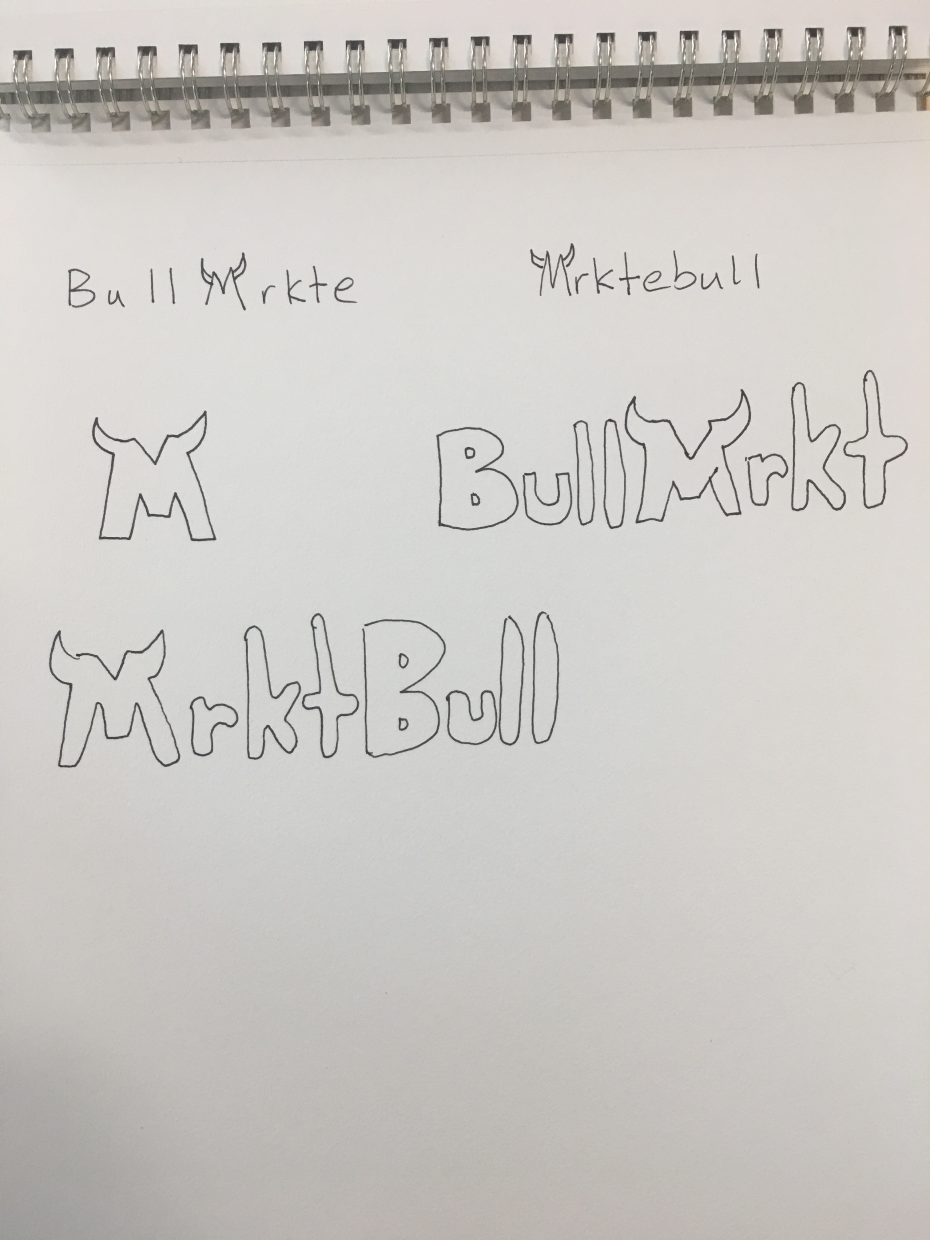 Bull Mrkte
Mrktebull
M
BullMrkt
MrktBull